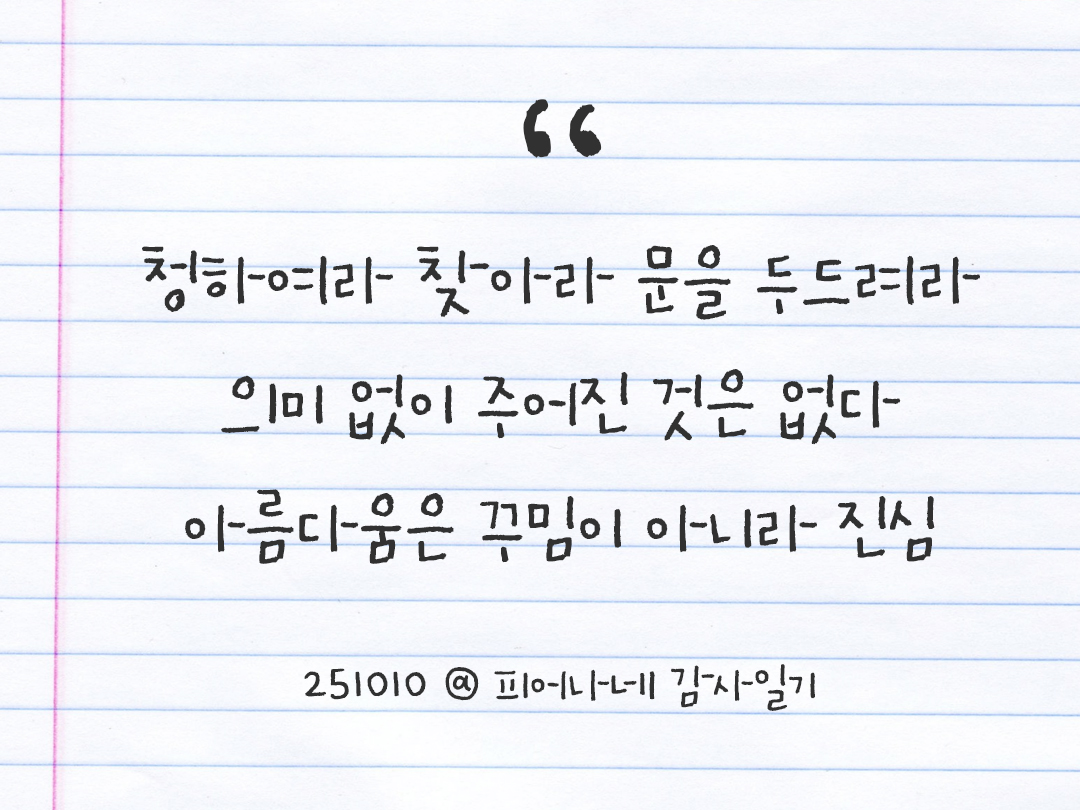 “
청하여라 찾아라 문을 두드려라
의미 없이 주어진 것은 없다
아름다움은 꾸밈이 아니라 진심
251010 @ 피어나네 감사일기